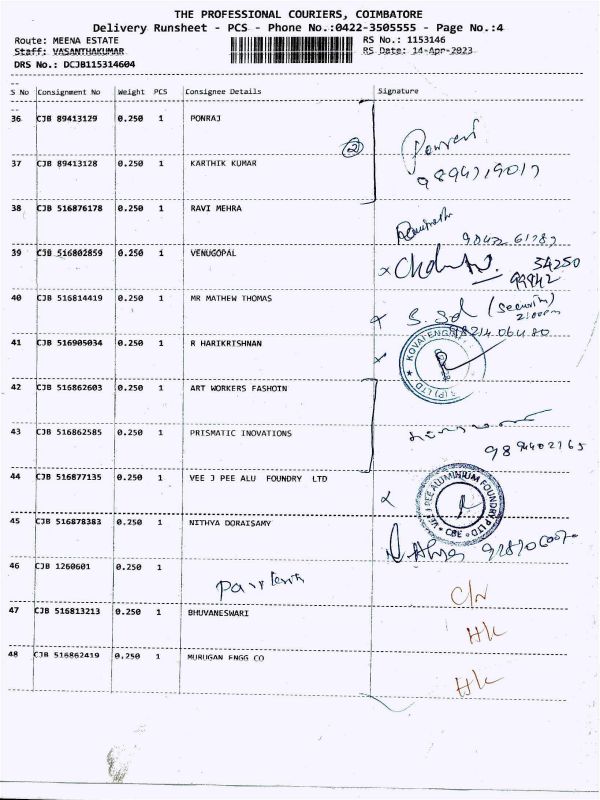 THE PROFESSIONAL COURIERS, COIMBATORE
Delivery Runsheet - PCS - Phone No.:0422-3505555 - Page No.:4
Route: MEENA ESTATE RS No.: 1153146
Staff: VASANTHAKUMAR RS Date: 14-Apr-2023
DRS No.: DCJB115314604
S No Consignment No Weight PCS Consignee Details Signature
36 CJB 89413129 0.250 1 PONRAJ
2
37 CJB 89413128 0.250 1 KARTHIK KUMAR
38 CJB 516876178 0.250 1 RAVI MEHRA
39 CJB 516802859 0.250 1 VENUGOPAL
54250
99942
40 CJB 516814419 0.250 1 MR MATHEW THOMAS
S. Sd (Security)
41 CJB 516905034 0.250 1 R HARIKRISHNAN
42 CJB 516862603 0.250 1 ART WORKERS FASHOIN
43 CJB 516862585 0.250 1 PRISMATIC INOVATIONS
44 CJB 516877135 0.250 1 VEE J PEE ALU FOUNDRY LTD
VEE J PEE ALUMINIUM FOUNDRY P LTD CBE
45 CJB 516878383 0.250 1 NITHYA DORAISAMY
46 CJB 1260601 0.250 1
C/N
47 CJB 516813213 0.250 1 BHUVANESWARI
HK
48 CJB 516862419 0.250 1 MURUGAN ENGG CO
HK